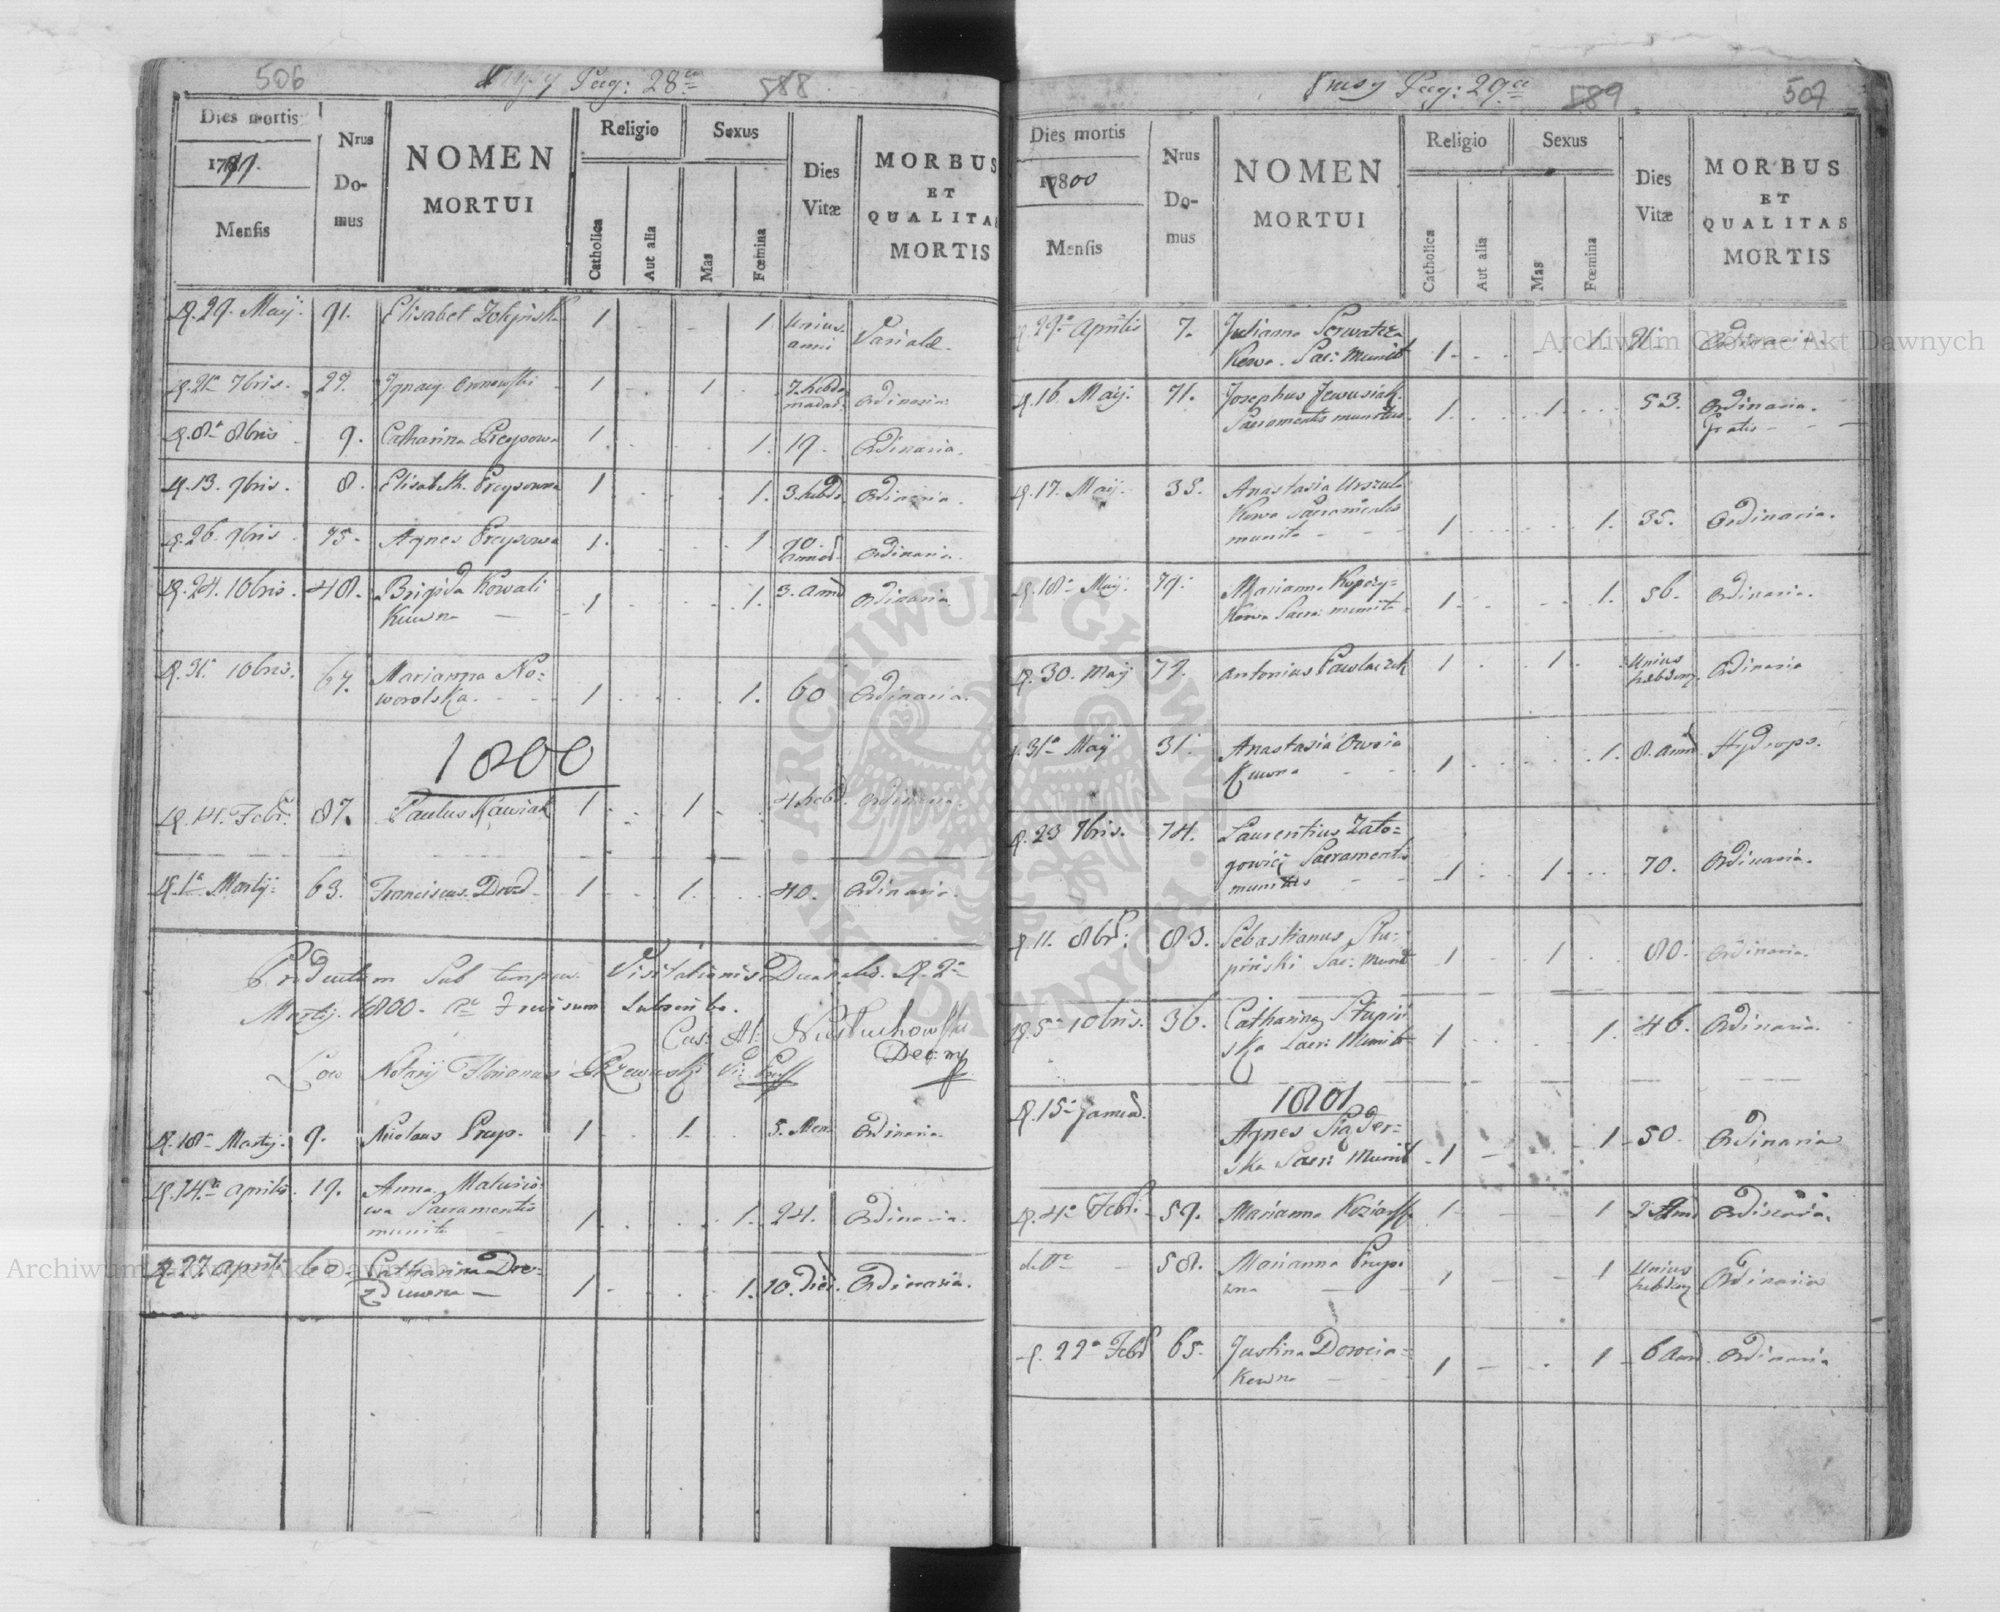 506
Pag: 28
588
Dies mortis
1799.
Mensis
Nrus
Do-
mus
NOMEN
MORTUI
Religio
Catholica
Aut alia
Sexus
Mas
Fœmina
Dies
Vitæ
MORBUS
ET
QUALITAS
MORTIS
D. 29. Maij. 91. Elisabet 1 1 unius
anni Variolæ.
D. 21a 7bris. 27. Ignacy 1 1 7. hebdo
madar. Ordinaria.
D. 8a 8bris 9. Catharina Preysowa 1. 1. 19. Ordinaria.
D. 13. 9bris. 8. Elisabeth. Preysowna 1 1. 3. hebd. Ordinaria.
D. 26. 9bris. 75. Agnes Preysowa 1. 1 70.
annor. Ordinaria.
D. 24. 10bris. 48. Brigida Kowali
Kuwna 1 1. 3. Anno Ordinaria
D. 31a 10bris. 67. Marianna No-
worolska. 1 1. 60 Ordinaria.
1800
D. 14. Febr. 87. Paulus Kawiak 1 1 4 hebd. Ordinaria.
D. 1a Martij. 63. Franciscus Drozd 1 1. 40. Ordinaria.
Productum Sub tempus Visitationis Decanalis. D. 2a
Martij. 1800. Subscribo.
Cas:
Dec:
Notarij Florianus
D. 18a Martij. 9. Nicolaus Preys. 1 1 5. Men. Ordinaria.
D. 14. Aprilis. 19. Anna
Sacramentis
munita 1 1. 24. Ordinaria.
D. 27 Aprilis 60. Catharina Dro-
zduwna 1 1. 10. Die. Ordinaria.
Pag: 29na
589
507
Dies mortis
1800
Mensis
Nrus
Do-
mus
NOMEN
MORTUI
Religio
Catholica
Aut alia
Sexus
Mas
Fœmina
Dies
Vitæ
MORBUS
ET
QUALITAS
MORTIS
D. 29a Aprilis 7. Julianna Serwatka
Kowa. Sac: Munit 1 1. Ordinaria.
D. 16. Maij. 71. Josephus
Sacramentis munitus 1 1 53. Ordinaria.
Gratis
D. 17. Maij. 35. Anastasia Urszul
Kowa Sacramentis
munita 1 1. 35. Ordinaria.
D. 18a Maij. 79. Marianna
Kowa Sacra: munita 1 1. 56. Ordinaria.
D. 30. Maij 79. Antonius Pawlaczek 1 1 Unius
hebdom. Ordinaria
D. 31a Maij 31. Anastasia Owsia
Kuwna 1 1. 8. Anno Hydrops.
D. 23 7bris. 74. Laurentius Zato-
gowicz Sacramentis
munitus 1 1 70. Ordinaria.
D. 11. 8br: 83. Sebastianus Stu-
pinski Sac: Munit 1 1 80. Ordinaria.
D. 5a 10bris. 36. Catharina Stupin
ska Sacr: Munita 1 1. 46. Ordinaria.
1801
D. 15a Januar. Agnes
ska Sacr: Munit 1 1 50. Ordinaria
D. 4a Febr. 59. Marianna 1 1 2 Anno Ordinaria.
detto 58. Marianna Preyso
wna 1 1 Unius
hebdom Ordinaria
D. 22a Febr 65. Justina Dorocia-
Kowna 1 1 6 Anno Ordinaria
ARCHIWUM GŁÓWNE AKT DAWNYCH
Archiwum Główne Akt Dawnych
Archiwum Główne Akt Dawnych